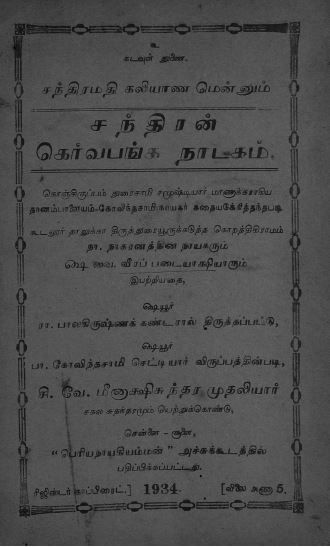 உ
கடவுள் துணை.
சந்திரமதி கலியாண மென்னும்
சந்திரன்
கெர்வபங்க நாடகம்.
கொள்கிருப்பம் துரைசாமி சமூஷ்டியார் மாணாக்கராகிய
தானம்பாளையம்-கோவிந்தசாமிநாயகர் கதையகேரித்தந்தபடி
கூடலூர் தாலுக்கா திருத்துரையூருக்கடுத்த கொறத்திகிராமம்
நா. நாகரனத்தின நாயகரும்
வீரப் படையாகூஷியாரும்
இயற்றியதை,
ஷெயூர்
ரா. பாலகிருஷ்ணக் கண்டரால் திருத்தப்பட்டு,
ஷெயூர்
பா. கோவிந்தசாமி செட்டியார் விருப்பத்தின்படி,
சி. வே. மீனாக்ஷிசுந்தர முதலியார்
சகல சுதந்தரமும் பெற்றுக்கொண்டு,
சென்னை - சூளை,
"பெரியநாயகியம்மன்" அச்சுக்கூடத்தில்
பதிப்பிக்கப்பட்டது.
ரிஜிஸ்டர் காப்பிரைட்.] 1934. [விலை அணா 5.